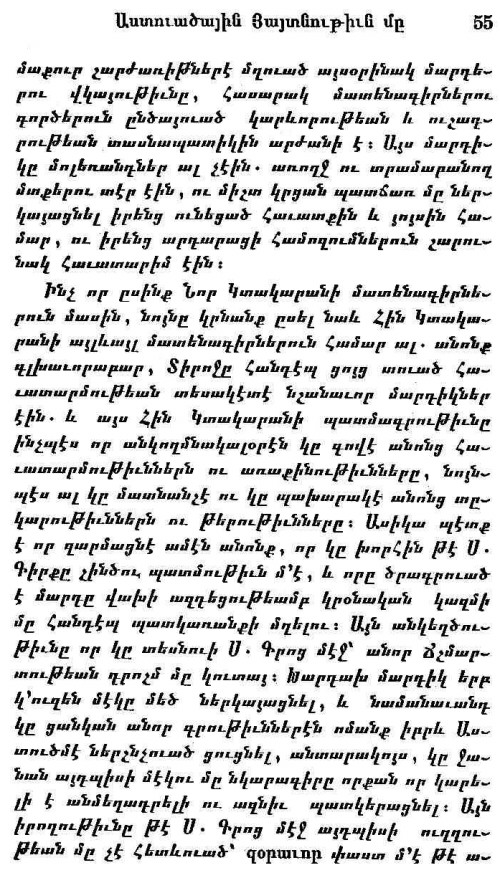 Աստուածային Յայտնութիւն մը 55
մաքուր շարժառիթներէ մղուած այսօրինակ մարդե-
րու վկայութիւնը, հասարակ մատենագիրներու
գործերուն ընծայուած կարևորութեան և ուշադ-
րութեան տասնապատիկին արժանի է: Այս մարդի-
կը մոլեռանդներ ալ չէին. առողջ ու տրամարանող
մտքերու տէր էին, ու միշտ կրցան պատճառ մը ներ-
կայացնել իրենց ունեցած հաւատքին և յոյսին հա-
մար, ու իրենց արդարացի համոզումներուն շարու-
նակ հաւատարիմ էին:
Ինչ որ ըսինք Նոր Կտակարանի մատենագիրնե-
րուն մասին, նոյնը կրնանք ըսել նաև Հին Կտակա-
րանի այլևայլ մատենագիրներուն համար ալ. անոնք
գլխաւորաբար, Տիրոջը հանդէպ ցոյց տուած հա-
ւատարմութեան տեսակէտէ նշանաւոր մարդիկներ
էին. և այս Հին Կտակարանի պատմագրութիւնը
ինչպէս որ անկողմնակալօրէն կը գովէ անոնց հա-
ւատարմութիւններն ու առաքինութիւնները, նոյն-
պէս ալ կը մատնանչէ ու կը պախարակէ անոնց տը-
կարութիւններն ու թերութիւնները: Ասիկա պէտք
է որ զարմացնէ ամէն անոնք, որ կը խորհին թէ Ս.
Գիրքը շինծու պատմութիւն մ'է, և որը ծրագրուած
է մարդը վախի ազդեցութեամբ կրօնական կազմի
մը հանդէպ պատկառանքի մղելու: Այն անկեղծու-
թիւնը որ կը տեսնուի Ս. Գրոց մէջ՝ անոր ճշմար-
տութեան դրոշմ մը կուտայ: Խարդախ մարդիկ երբ
կ'ուզեն մէկը մեծ ներկայացնել, և նամանաւանդ
կը ցանկան անոր գրութիւններէն ոմանք իբրև Աս-
տուծմէ ներշնչուած ցուցնել, անտարակոյս, կը ջա-
նան այդպիսի մէկու մը նկարագիրը որքան որ կարե-
լի է անմեղադրելի ու ազնիւ պատկերացնել: Այն
իրողութիւնը թէ Ս. Գրոց մէջ այդպիսի ուղղու-
թեան մը չէ հետևուած՝ զօրաւոր փաստ մ'է թէ ա-